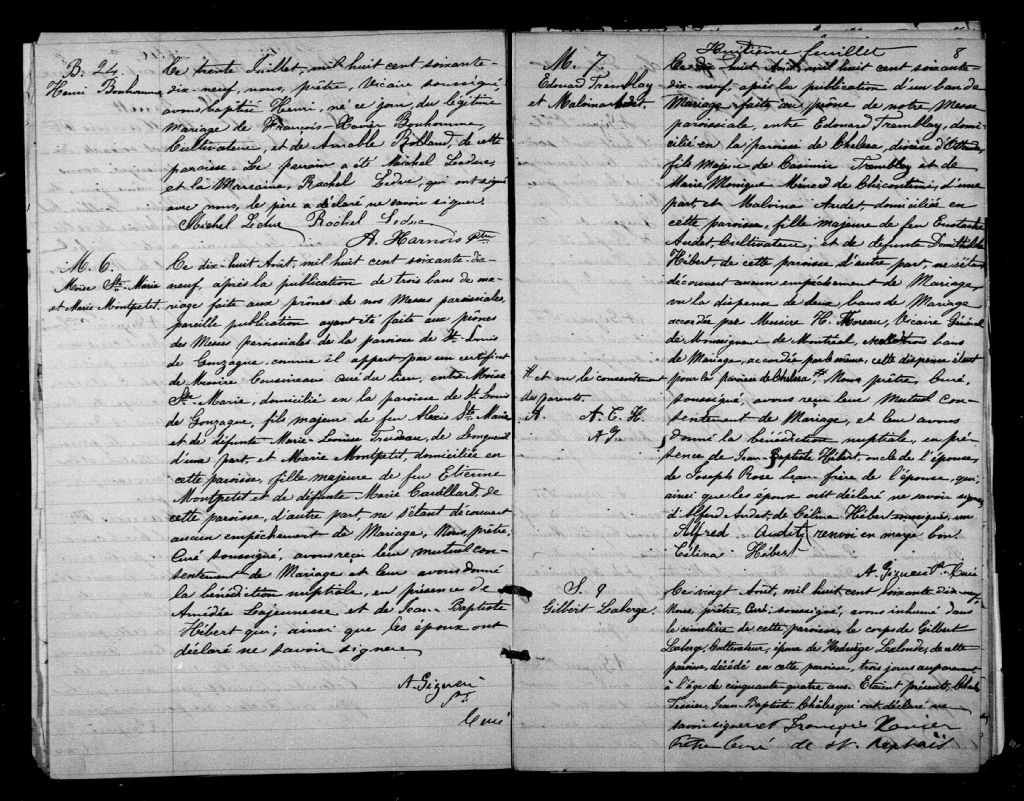 B. 24.
Henri Bonhomme
Ce trente Juillet, mil huit cent soixante-
dix-neuf, nous, prêtre, Vicaire soussigné,
avons baptisé Henri, né ce jour, du légitime
mariage de François-Xavier Bonhomme,
Cultivateur, et de Aimable Rolland, de cette
paroisse. Le parrain a été Michel Leduc,
et la Marraine, Rachel Leduc, qui ont signé
avec nous, le père a déclaré ne savoir signer.
Michel Leduc Rachel Leduc
A. Harnois Ptre
M. 6.
Moïse Ste Marie
et Marie Montpetit.
Ce dix-huit Août, mil huit cent soixante-dix-
neuf, après la publication de trois bans de ma-
riage faite aux prônes de nos Messes paroissiales,
pareille publication ayant été faite aux prônes
des Messes paroissiales de la paroisse de St. Louis
de Gonzague, comme il appert par un certificat
de Messire Cousineau curé du lieu, entre Moïse
Ste Marie, domicilié en la paroisse de St Louis
de Gonzague, fils majeur de feu Alexis Ste Marie
et de défunte Marie-Louise Trudeau, de Longueuil
d'une part, et Marie Montpetit, domiciliée en
cette paroisse, fille majeure de feu Etienne
Montpetit et de défunte Marie Cardillard, de
cette paroisse, d'autre part, ne s'étant découvert
aucun empêchement de Mariage, Nous, prêtre,
Curé soussigné, avons reçu leur mutuel con-
sentement de Mariage et leur avons donné
la bénédiction nuptiale, en présence de
Amédée Lajeunesse, et de Jean-Baptiste
Hébert qui, ainsi que les époux ont
déclaré ne savoir signer.
A. Giguère
Ptre
Curé
Huitième feuillet 8
M. 7.
Edouard Tremblay
et Malvina Audet.
huit Août, mil huit cent soixante-
dix-neuf, après la publication d'un ban de
Mariage faite au prône de notre Messe
paroissiale, entre Edouard Tremblay, domi-
cilié en la paroisse de Chelsea, diocèse d'Ottawa,
fils majeur de Casimir Tremblay et de
Marie Monique Ménard de Chicoutimi, d'une
part, et Malvina Audet, domiciliée en
cette paroisse, fille majeure de feu Eustache
Audet, Cultivateur, et de défunte Domithilde
Hébert, de cette paroisse d'autre part, ne s'étant
découvert aucun empêchement de Mariage,
vu la dispense de deux bans de Mariage
accordée par Messire H. Moreau, Vicaire Général
de Monseigneur de Montréal, bans
de Mariage, accordée par le même, cette dispense étant
pour la paroisse de Chelsea, # Nous prêtre, Curé,
soussigné, avons reçu leur mutuel con-
sentement de Mariage, et leur avons
donné la bénédiction nuptiale, en pré-
sence de Jean-Baptiste Hébert, oncle de l'épouse,
de Joseph Rose beau-frère de l'épouse, qui,
ainsi que les époux ont déclaré ne savoir signer,
d'Alfred Audet, de Célina Hébert un
Alfred Audet renvoi en marge bon.
Célina Hébert
A. Giguère Ptre Curé
# et vu le consentement
de parents.
A. A. E. H.
A G.
S. 9
Gilbert Laberge.
Ce vingt Août, mil huit cent soixante-dix-neuf,
Nous, prêtre, Curé, soussigné, avons inhumé dans
le cimetière de cette paroisse, le corps de Gilbert
Laberge, Cultivateur, époux de Hedwige Lalonde, de cette
paroisse, décédé en cette paroisse, trois jours auparavant
à l'âge de cinquante-quatre ans. Etaient présents,
Tessier, Jean-Baptiste Châles qui ont déclaré ne
savoir signer et François Xavier
Prêtre Curé de St. Raphaël